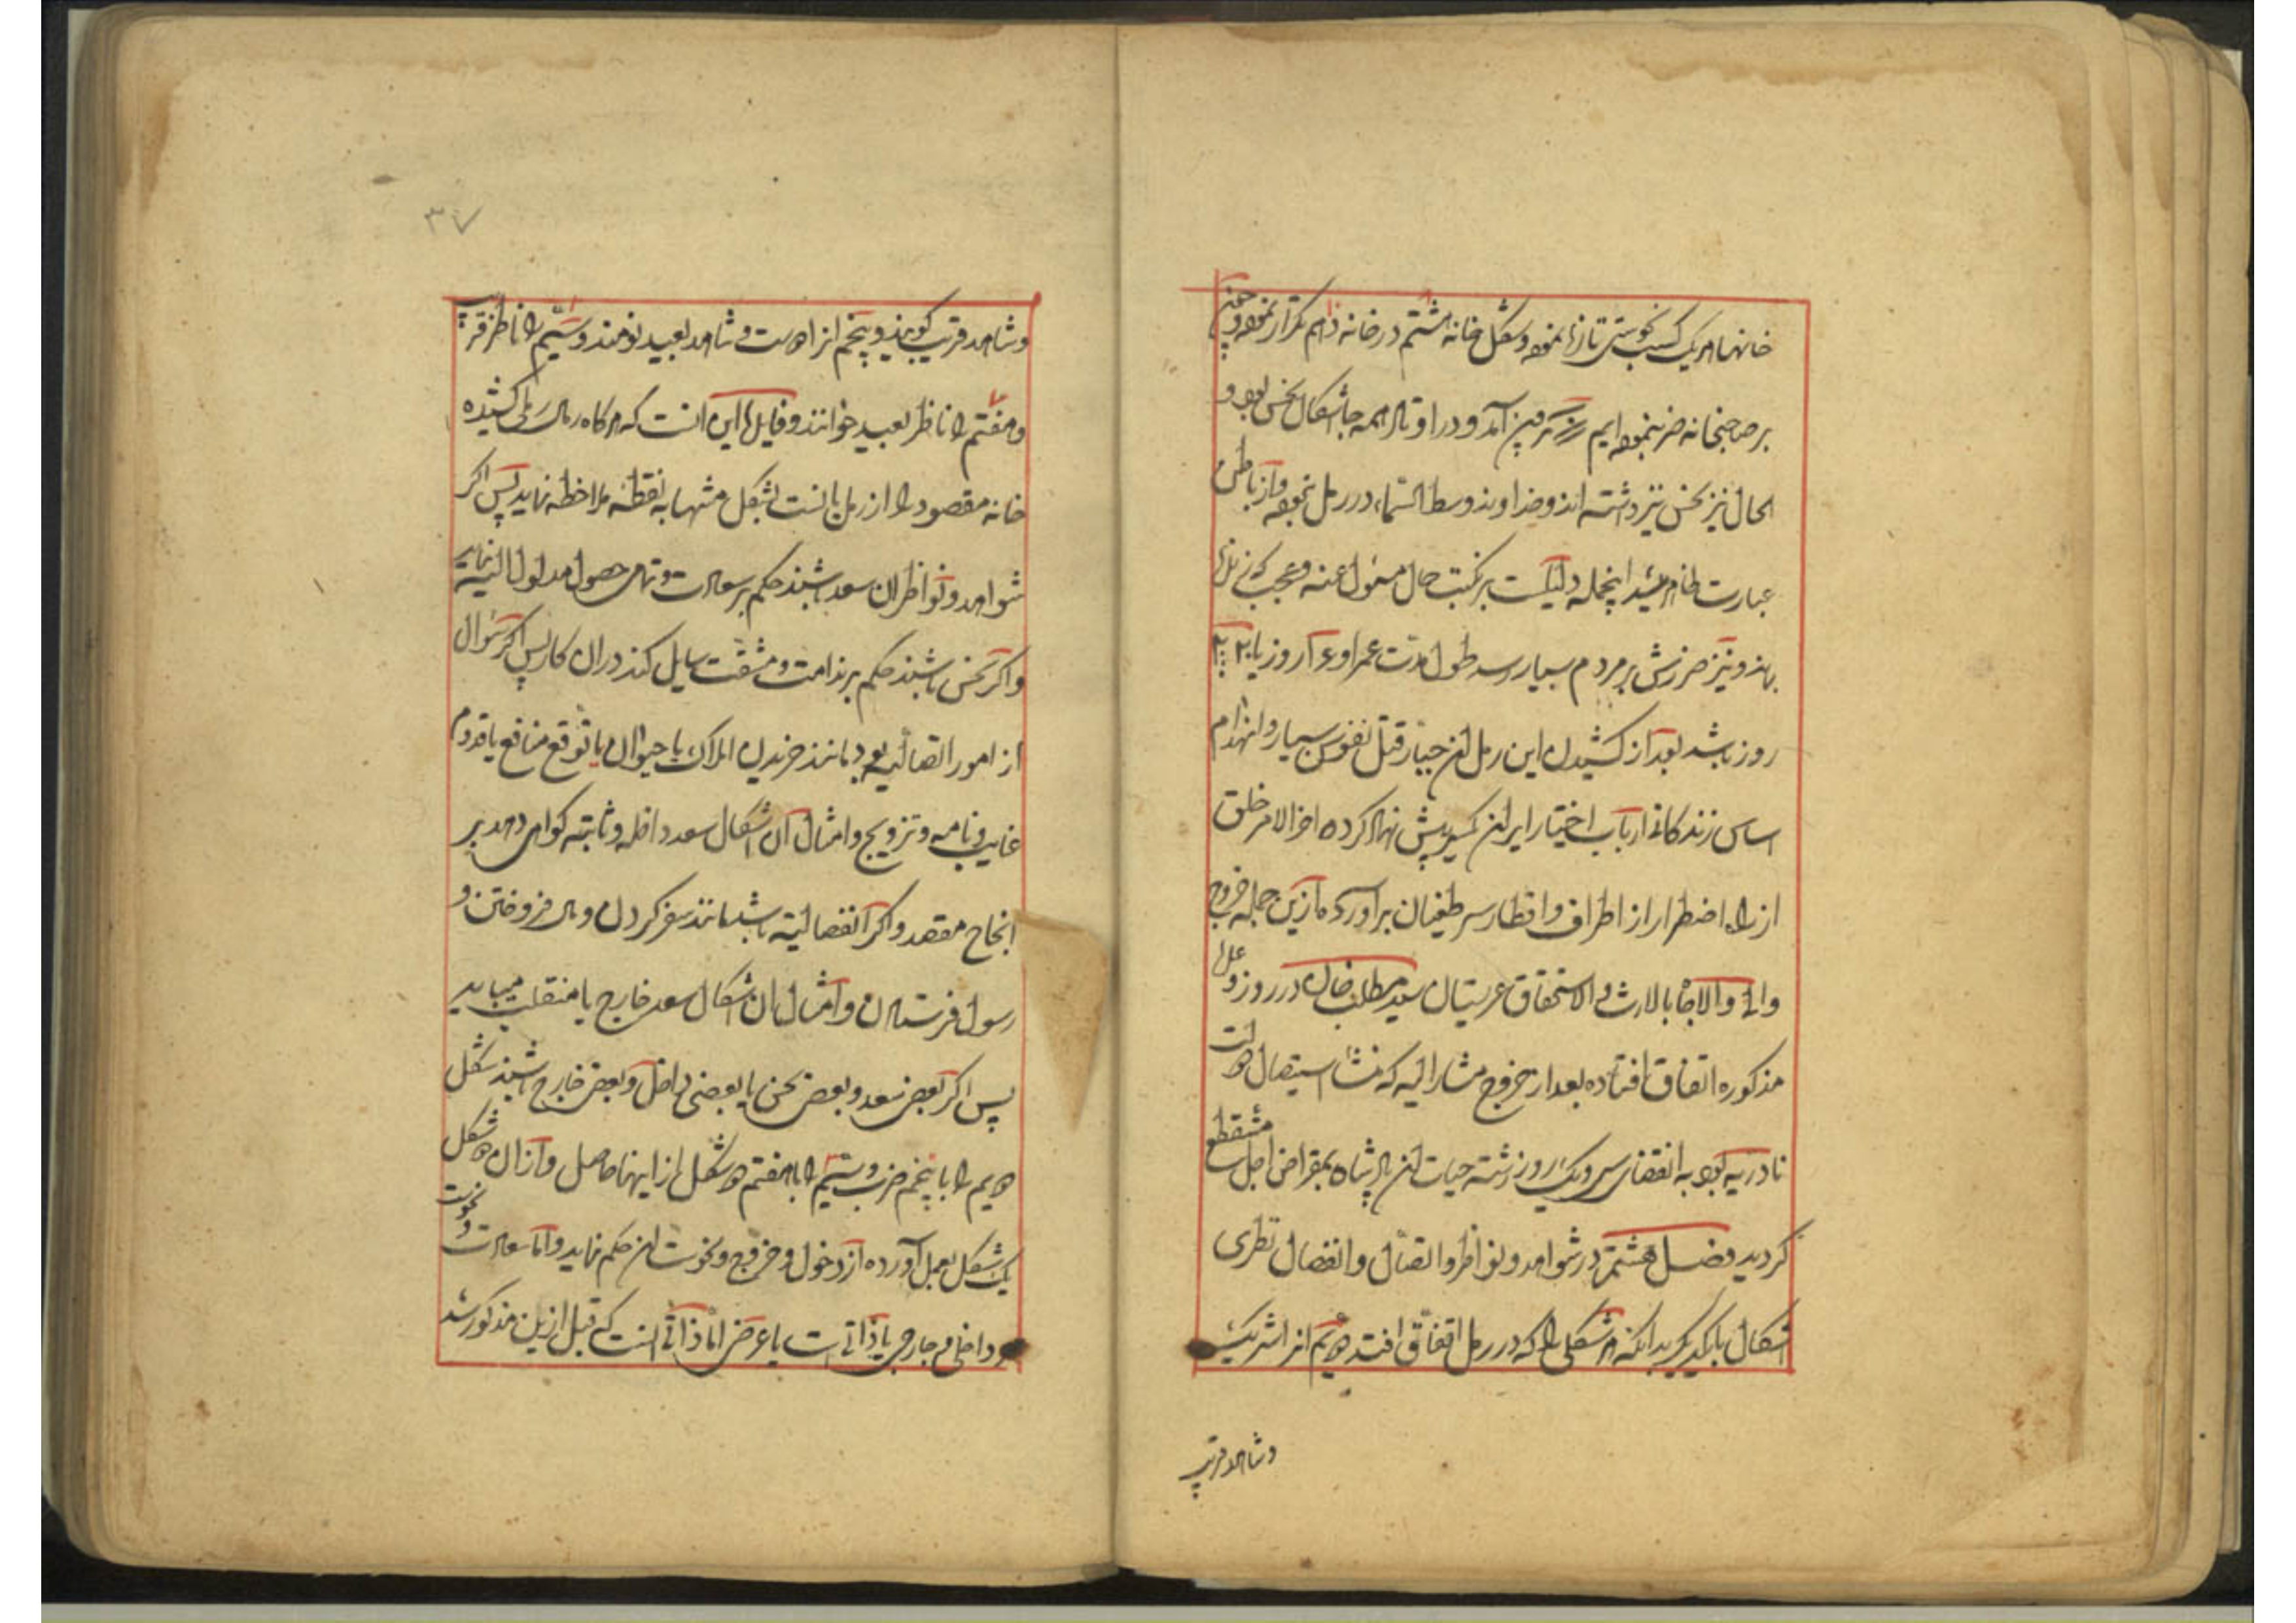 خانها هر یک کسب نحوستی تازه نموده و شکل خانه هشتم در خانه دهم تکرار نموده و چون
بر صاحبخانه ضرب نموده ایم آمد و در اوتاد همه جا اشکال نحس بود و
الحال نیز نحس نیز داشته اند و خداوند وسط السماء در رمل نبوده و از باطن
عبارت ظاهر میشد اینجمله دلیلست بر نکبت حال مسئول عنه و عجب که
بهذ و نیز ضررش بمردم بسیار رسد طول مدت عمر او روز یا
روز باشد بعد از کشیدن این رمل آن جبار قتل نفوس بسیار و انهدام
اساس زندگانی ارباب اختیار ایران پیش نهاد کرده اخر الامر خلق
از راه اضطرار از اطراف و اقطار سر طغیان برآورده ازین جمله خروج
والی والاجاه بالارث و الاستحقاق عربستان سید مطلب خان در روز و
مذکوره اتفاق افتاده بعد از خروج مشار الیه که منشا استیصال دولت
نادریه بود به انقضای سی و یک روز رشته حیات آن پادشاه بمقراض اجل منقطع
گردید فصل هشتم در شواهد و نواظر و اتصال و انفصال نظری
اشکال با یکدیگر بدانکه هر شکلی را که در رمل اتفاق افتد دویم آنرا شریک
و شاهد قریب
۳۷
و شاهد قریب گویند و پنجم آنرا دوست و شاهد بعید نومند و سیم را ناظر قریب
و هفتم را ناظر بعید خوانند و فایده این آنست که هرگاه رمال رملی کشیده
خانه مقصود را از رمل بالست بشکل منتهابه نقطه ملاحظه نماید پس اگر
شواهد و نواظر آن سعد باشند حکم بر سعادت و تمامی حصول مدلول البته نماید
و اگر نحس باشند حکم برندامت و مشقت سایل کند در آن کار پس اگر سئوال
از امور اتصالیه بود مانند خریدن املاک یا حیوان یا توقع منافع یا قدوم
غایب و نامه و تزویج و امثال آن اشکال سعد داخله و ثابته گواهی دهد بر
انجاح مقصد و اگر انفصالیه باشد مانند سفر کردن و مال فروختن و
رسول فرستادن و امثال آن اشکال سعد خارج یا منقلب میباید
پس اگر بعضی سعد و بعضی نحس یا بعضی داخل و بعضی خارج باشند شکل
دویم را با پنجم ضرب و سیم را با هفتم دو شکل از اینها حاصل و از آن دو شکل
یک شکل بعمل آورده از دخول و خروج و نحوست آن حکم نماید و اما سعادت و نحوست
و داخلی و خارجی یا ذاتی است یا عرضی اما ذاتی آنست که قبل ازین مذکور شد